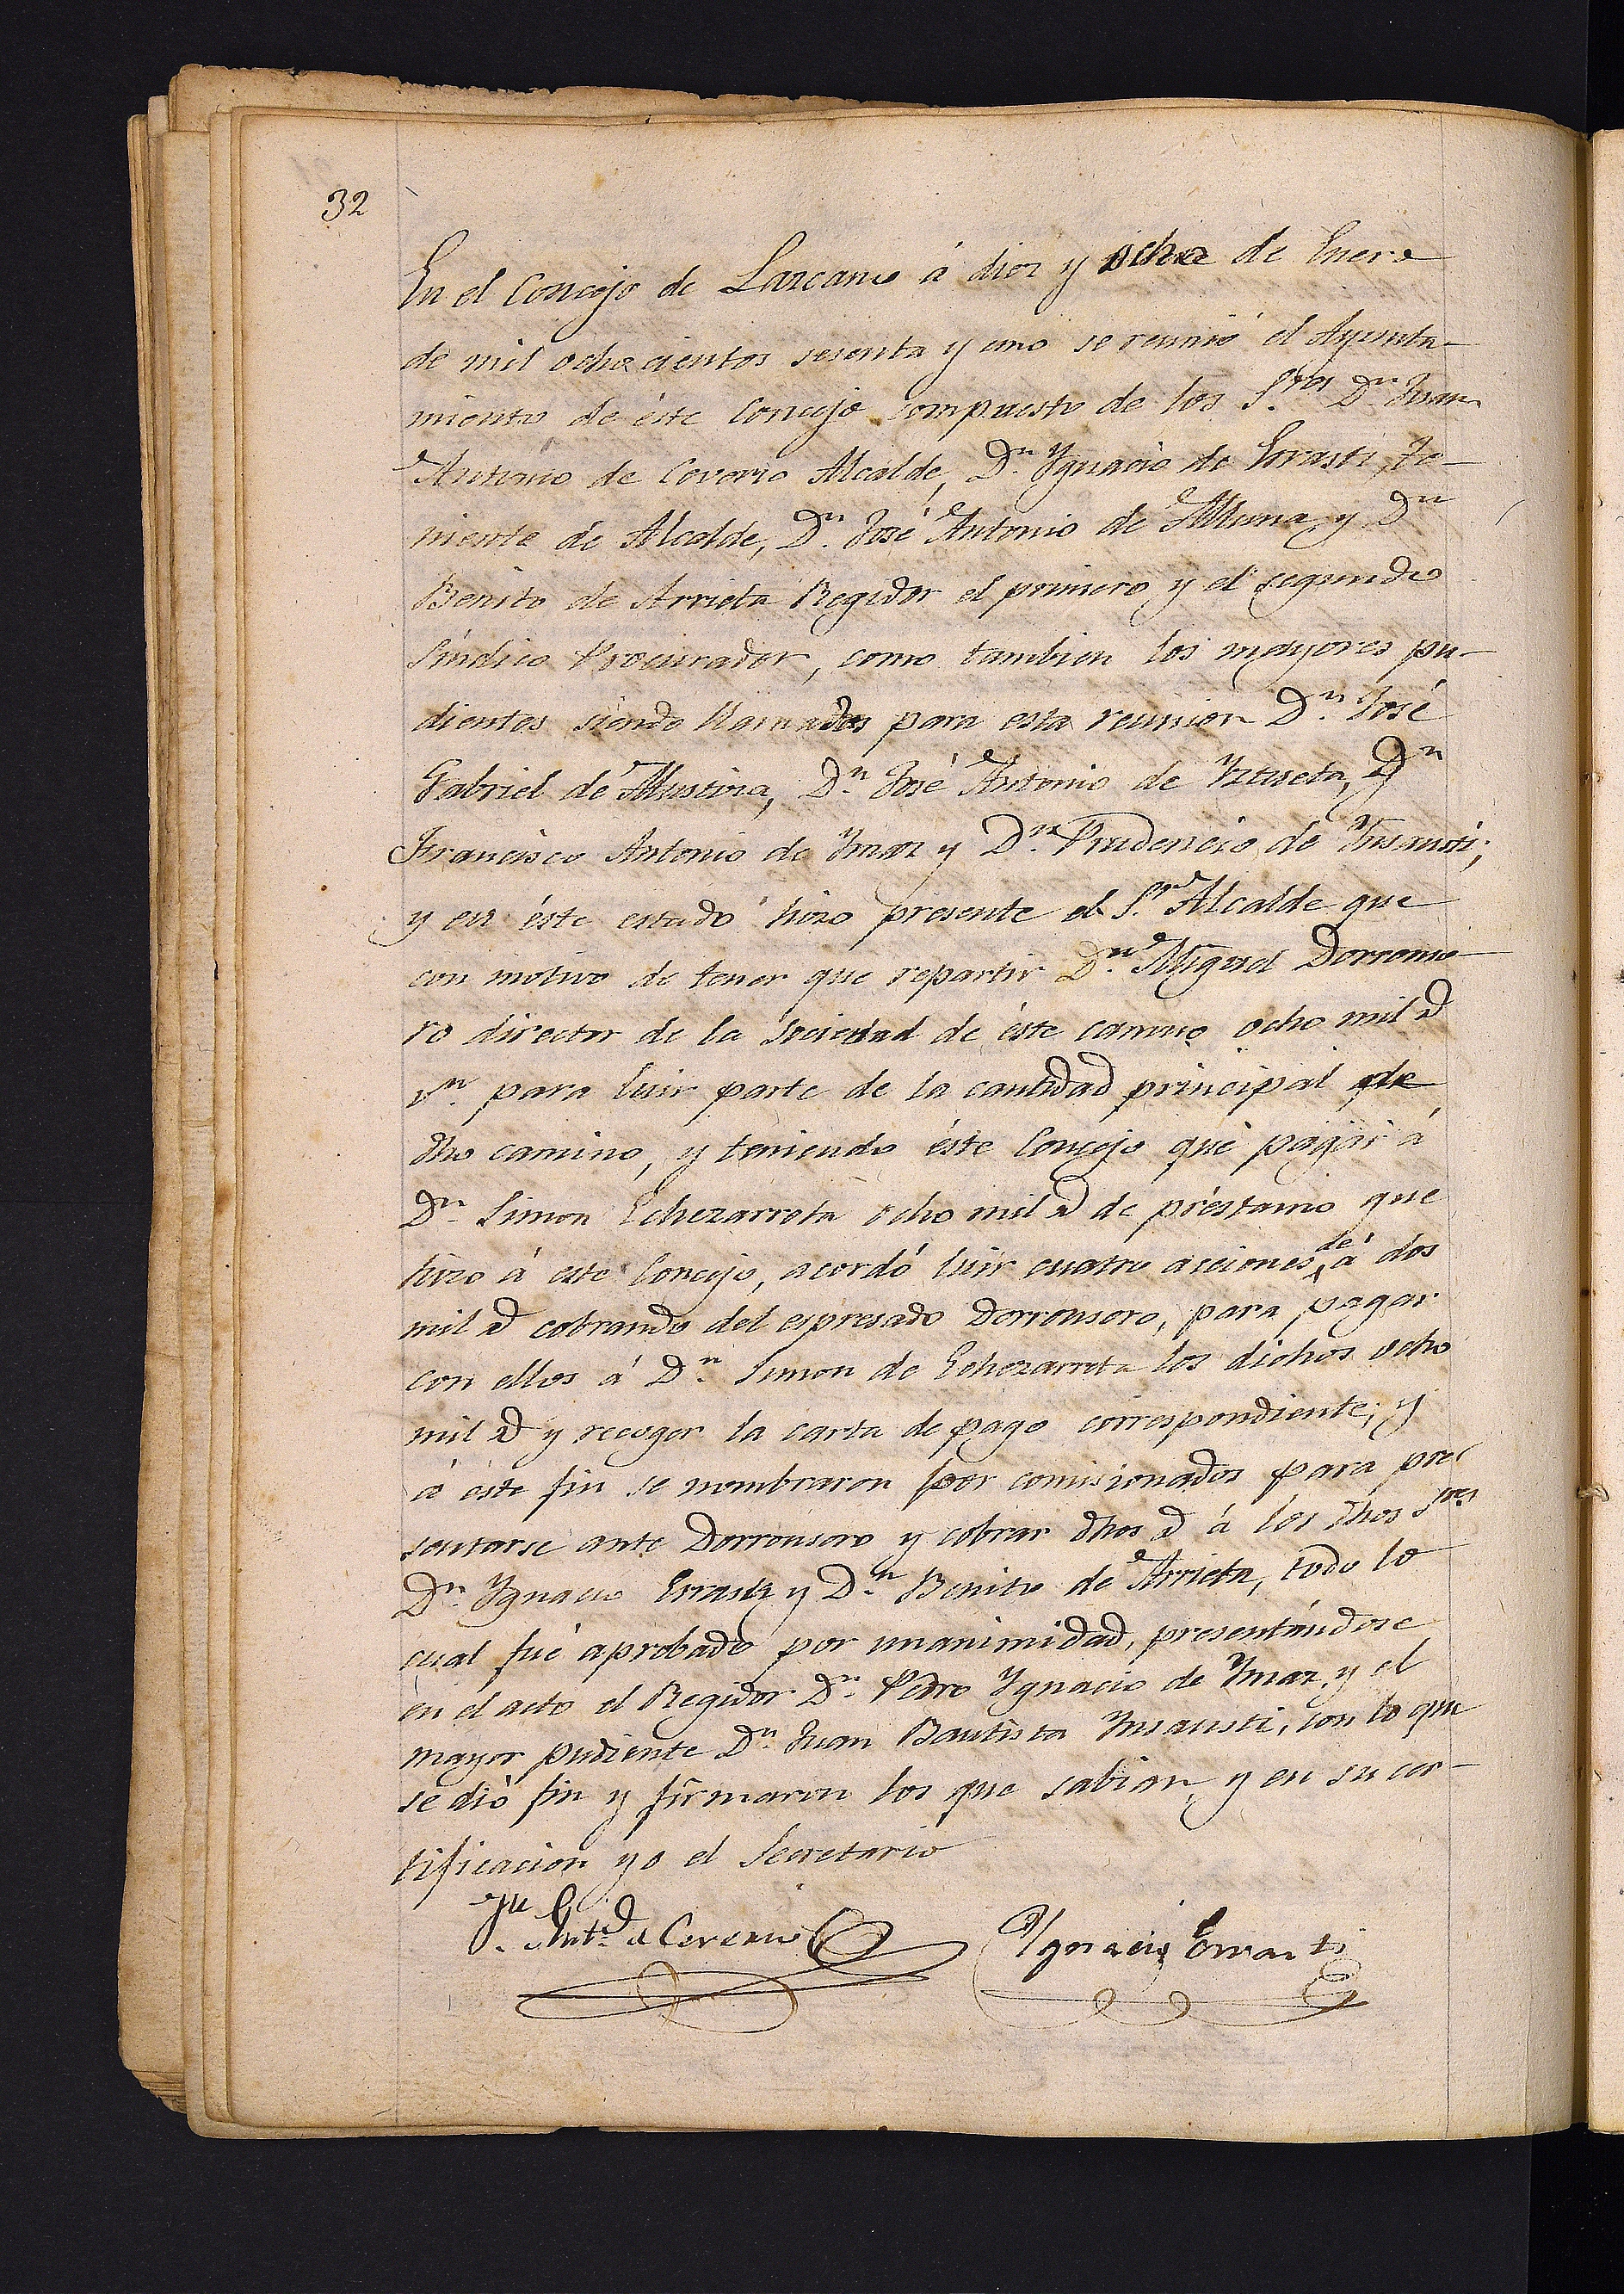 32
En el Concejo de Lazcano á diez y ocho de Enero
de mil ochocientos sesenta y uno se reunió el Ayunta-
miento de éste Concejo compuesto de los S.res Dn. Juan
Antonio de Cererio Alcalde, Dn. Ygnacio de Errasti Te-
niente de Alcalde, Dn. José Antonio de Muna, y Dn
Benito de Arrieta Regidor el primero y el segundo
Síndico Procurador, como tambien los mayores pu-
dientes siendo llamados para esta reunion Dn. José
Gabriel de Mustira, Dn. José Antonio de Yztueta, Dn
Francisco Antonio de Ymaz y Dn. Prudencio de Ynsausti;
y en éste estado hizo presente el S.r Alcalde que
con motivo de tener que repartir Dn. Miguel Dorronso
ro director de la sociedad de éste camino ocho mil rs
vn. para luir parte de la cantidad principal de
dho camino, y teniendo éste Concejo que pagar á
Dn. Simon Echezarreta ocho mil rs de préstamo que
hizo á este Concejo, acordó luir cuatro aciones de á dos
mil rs cobrando del espresado Dorronsoro, para pagar
con ellos á Dn. Simon de Echezarreta los dichos ocho
mil rs y recoger la carta de pago correspondiente; y
á este fin se nombraron por comisionados para pre-
sentarse ante Dorronsoro y cobrar dhos rs á los dhos S.res
Dn. Ygnacio Errasti y Dn. Benito de Arrieta, todo lo
cual fué aprobado por unanimidad, presentándose
en el acto el Regidor Dn. Pedro Ygnacio de Ymaz, y el
mayor pudiente Dn. Juan Bautista Ynsausti, con lo que
se dió fin y firmaron los que sabian, y en su cer-
tificacion yo el Secretario
Ju Ant.o de Cererio
Ygnacio Errasti